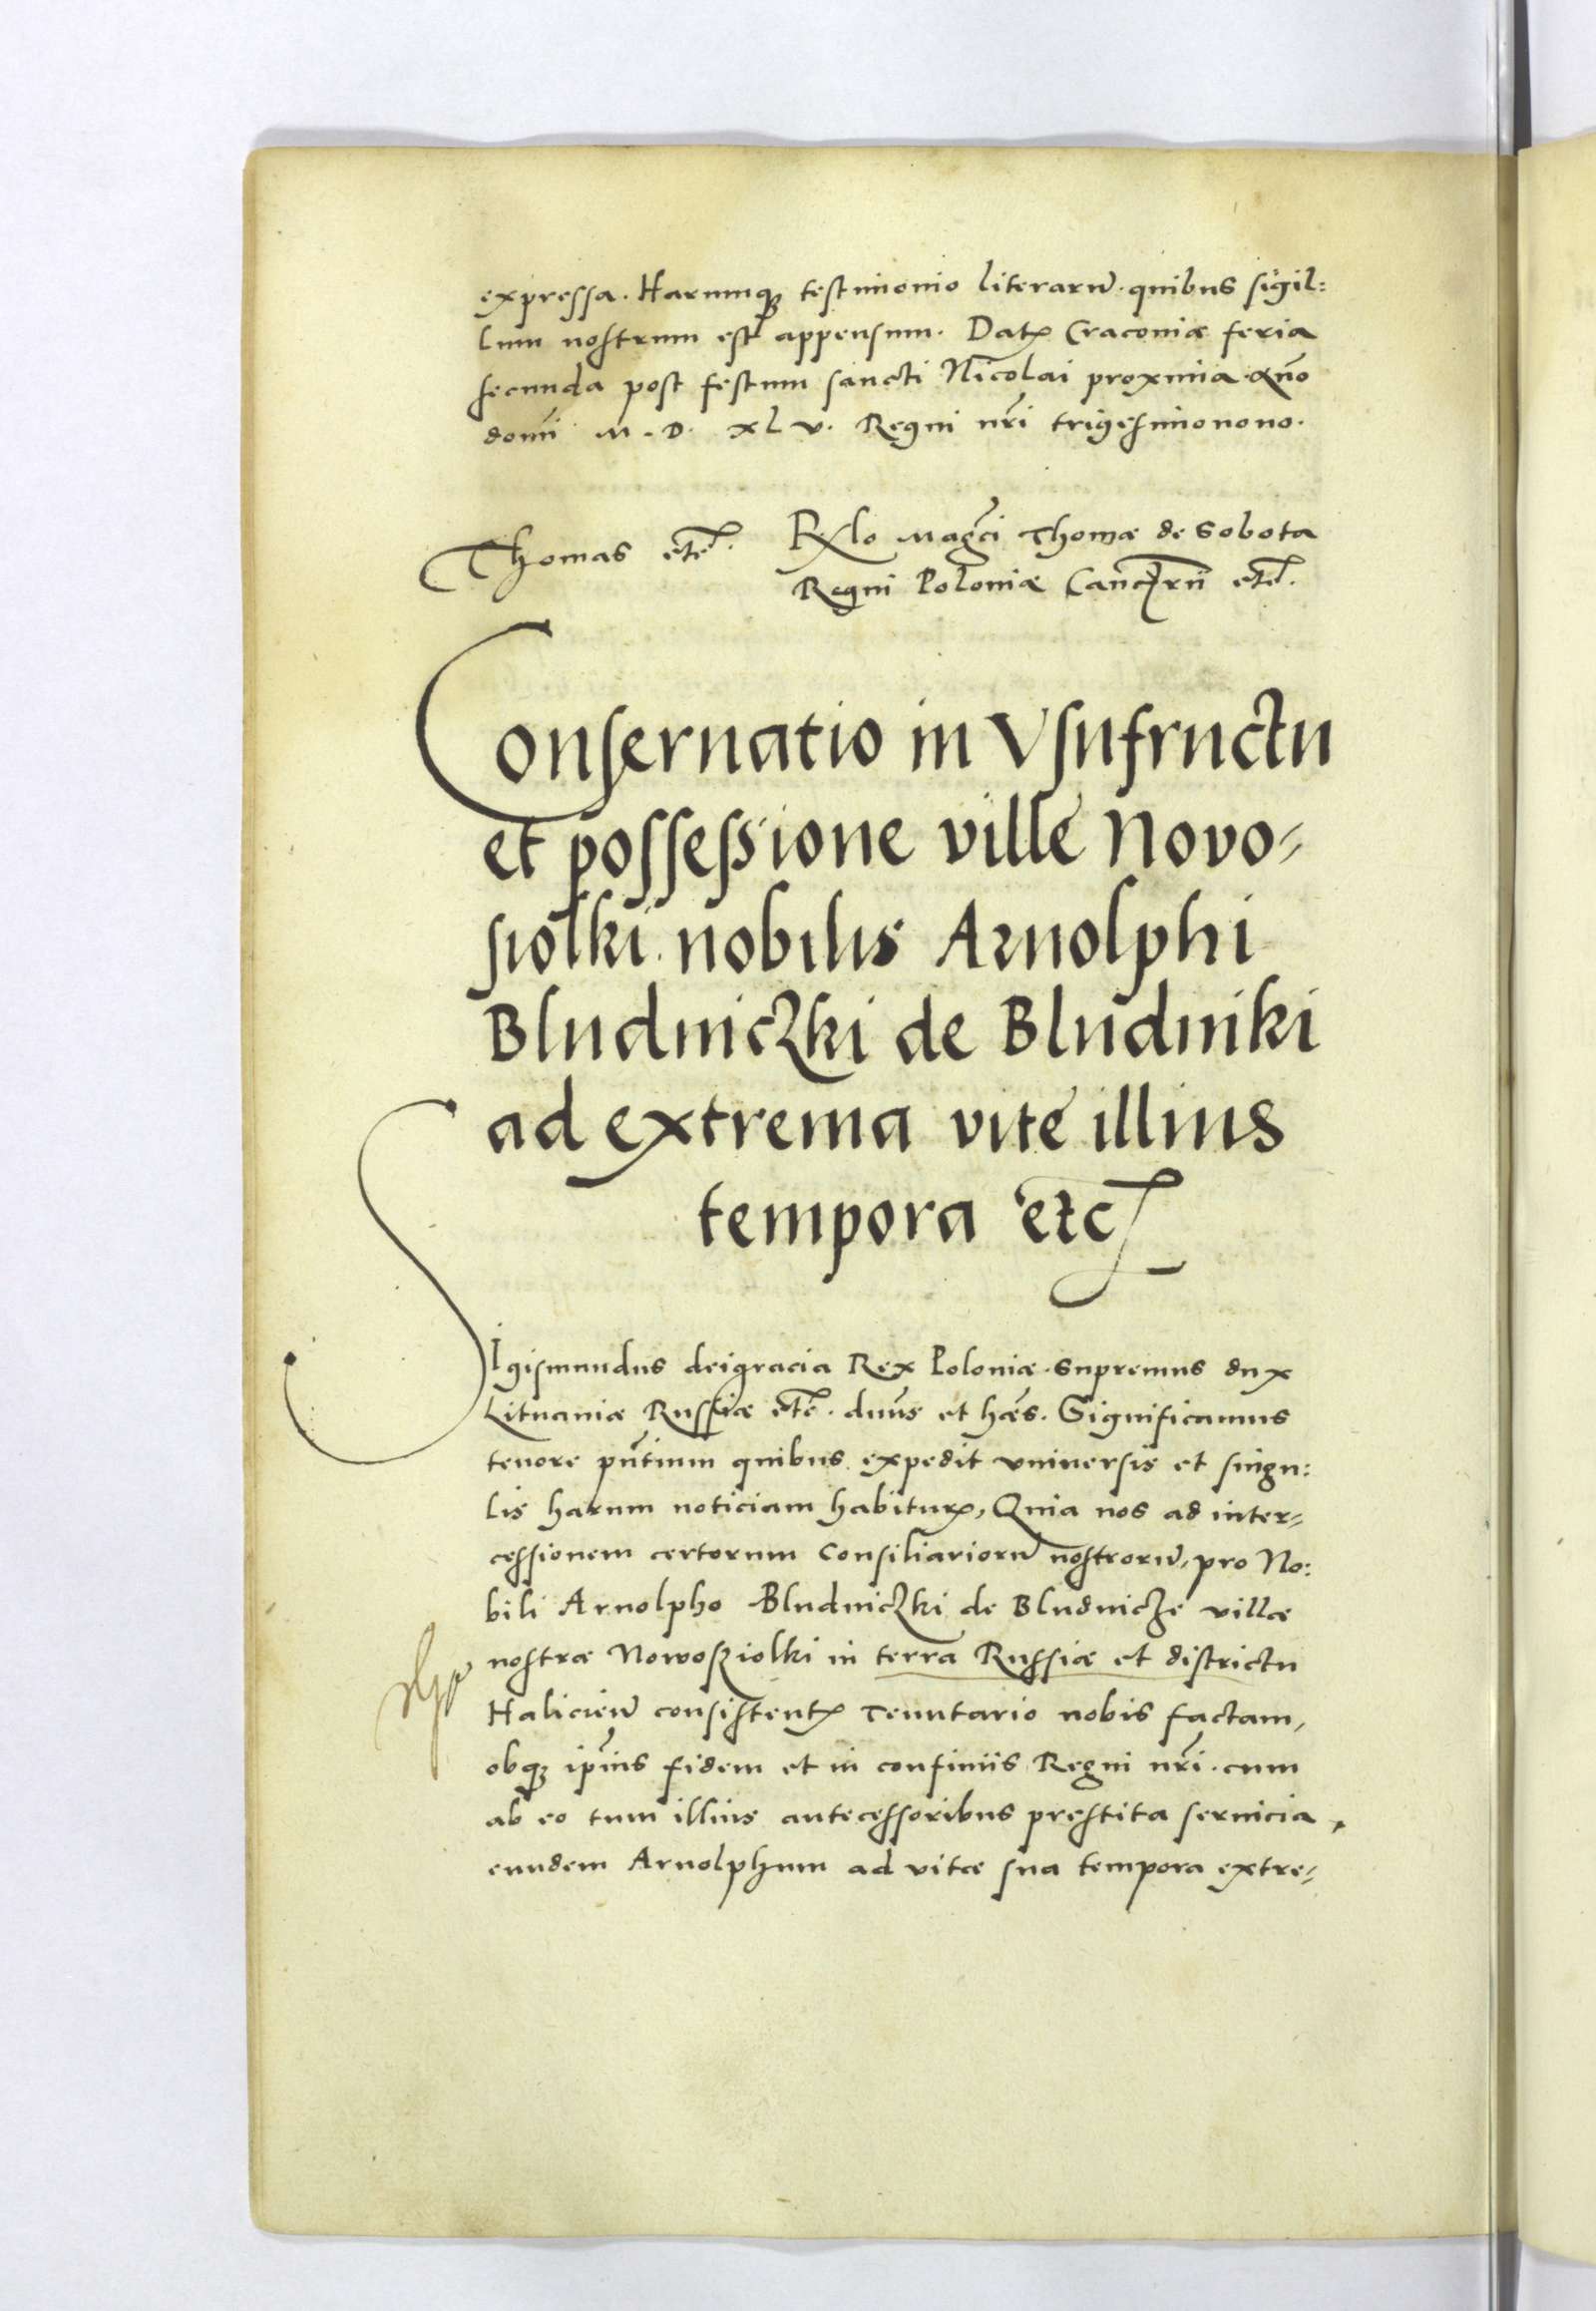 expressa. Harumq₃ testimonio literarū. quibus sigil:
lum nostrum est appensum. Datꝭ Cracouiæ feria
secunda post festum sancti Nicolai proxima. Año
domī M. D. xlv. Regni nr̄i trigesimonono.
Thomas etc̄. Rㄨlo Magc̄i Thomæ de Sobota
Regni Poloniæ Canc̄rii etc̄.
Conseruatio in Vsufructu
et possessione ville Novo-
siolki nobilis Arnolphi
Bludniczki de Bludniki
ad extrema vite illius
tempora etc
SIgismundus dei gracia Rex Poloniæ. supremus dux
Lituaniæ Russiæ etc̄. dn̄us et hǣs. Significamus
tenore pn̄tium quibus expedit vniuersis et singu:
lis harum noticiam habiturꝭ, Quia nos ad inter-
cessionem certorum Consiliariorū nostrorū, pro No:
bili Arnolpho Bludniczki de Bludnicze villæ
nostræ Nowosziolki in terra Russiæ et districtu
Haliciēn̄ consistentꝭ Tenutario nobis factam,
obq₃ ip̄ius fidem et in confiniis Regni nr̄i. cum
ab eo tum illius antecessoribus prestita seruicia,
eundem Arnolphum ad vitæ sua tempora extre-